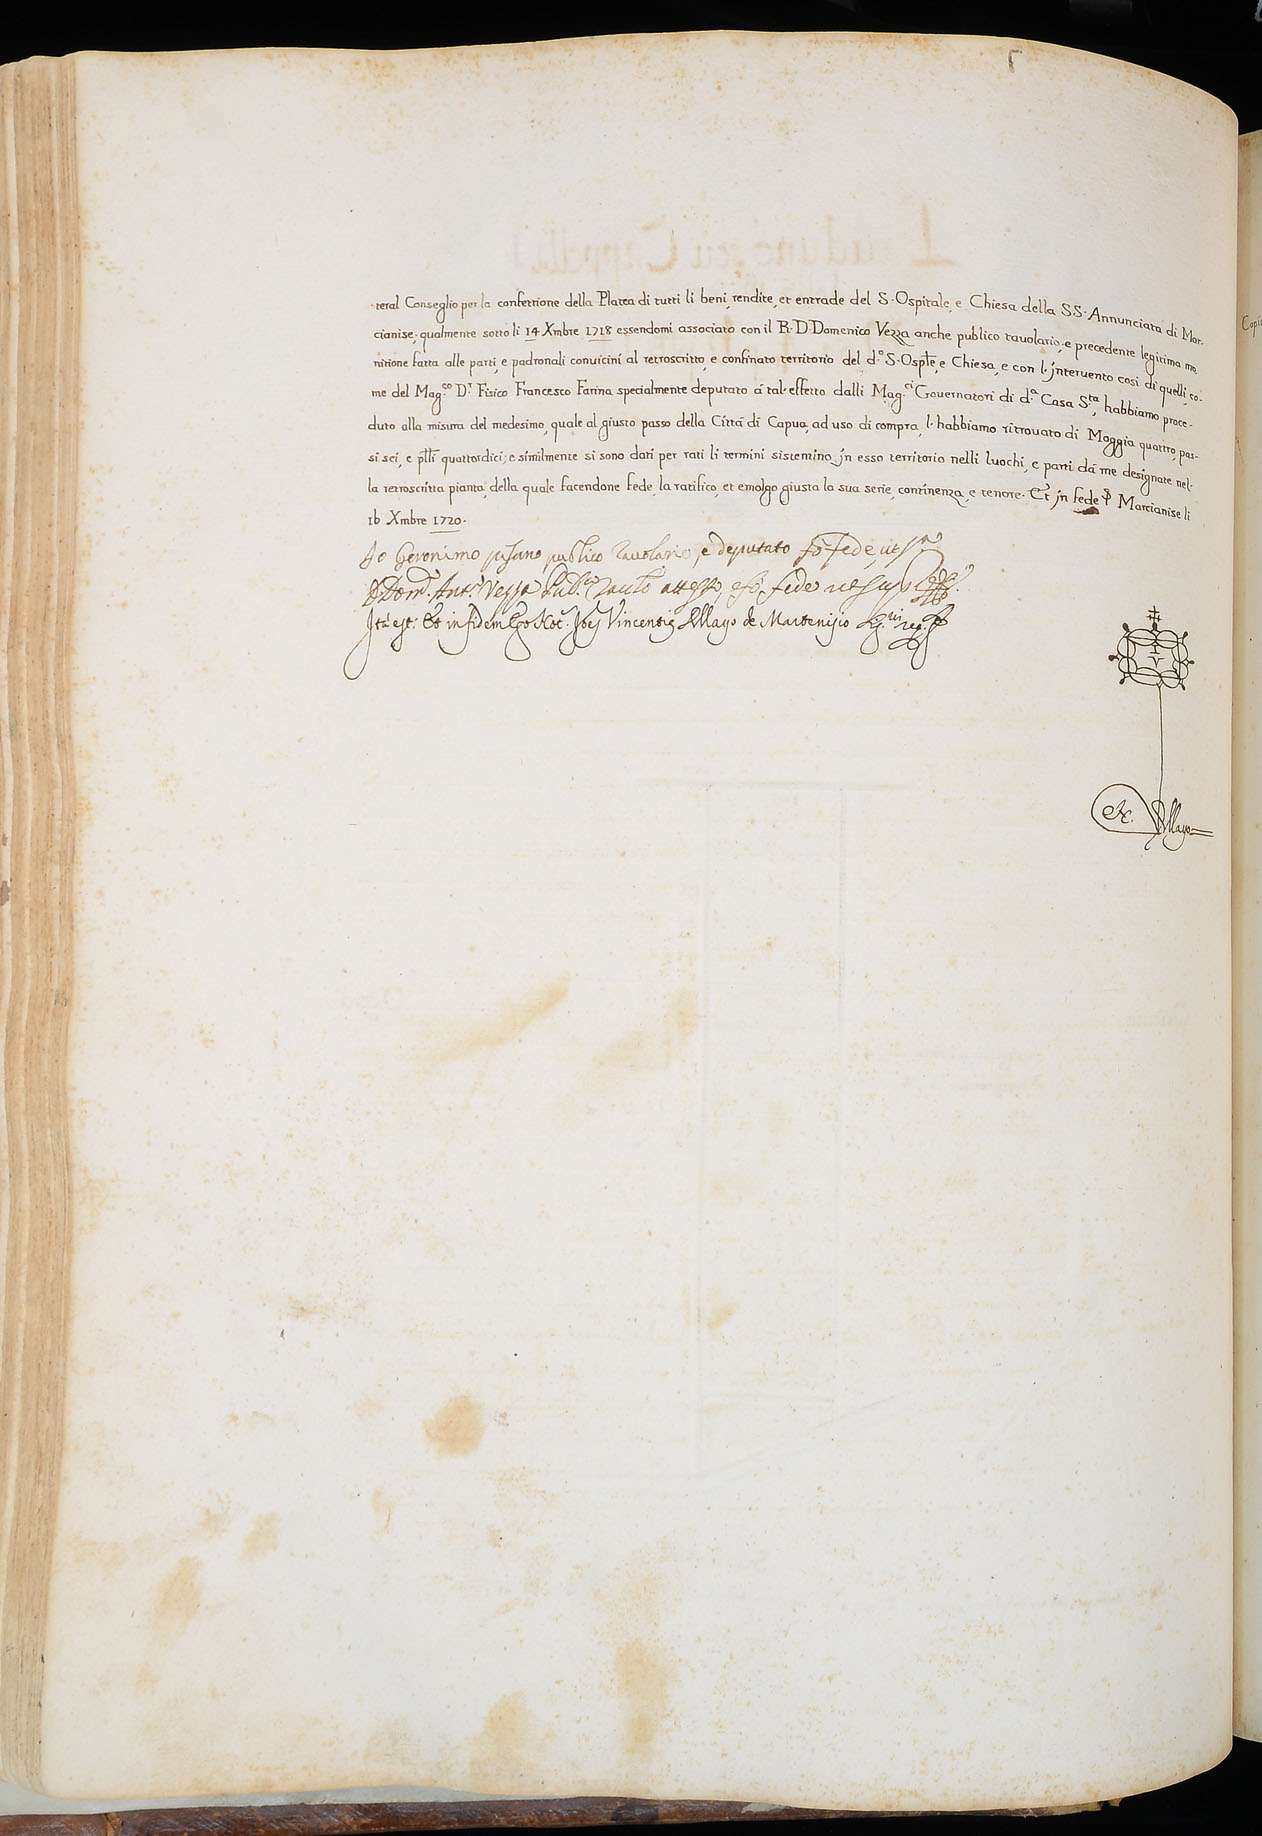 teral Conseglio per la confettione della Platea di tutti li beni, rendite, et entrade del S. Ospitale, e Chiesa della SS. Annunciata di Mar-
cianise; qualmente sotto li 14 Xmbre 1718 essendomi associato con il R. D. Domenico Vezza anche publico tavolario, e precedente legitima mo-
nitione fatta alle parti, e padronali convicini al retroscritto, e confinato territorio del d.º S. Ospłe, e Chiesa, e con l'jntervento così di quelli, co-
me del Mag.co D.r Fisico Francesco Farina specialmente deputato á tal' effetto dalli Mag.ci Governatori di d.a Casa S.ta, habbiamo proce-
duto alla misura del medesimo, quale al giusto passo della Cittá di Capua, ad uso di compra, l'habbiamo ritrovato di Moggia quattro, pas-
si sei, e płti quattordici; e similmente si sono dati per rati li termini sistentino jn esso territorio nelli luochi, e parti dá me designate nel-
la retroscritta pianta, della quale facendone fede, la ratifico, et emolgo giusta la sua serie, continenza, e tenore. Et jn fede ꝑ Marcianise li
16 Xmbre 1720.
Io Geronimo publico Tavolario, e deputato fó fede, ut s.a
D. Dom.º Ant.º Vezza Pub.co Tavul.º attesto, e fó fede ut sup.a
Ita est: Et in fidem Ego Not.s Joēs Vincentius Mayo de Martenisio
N. Mayo
Copia